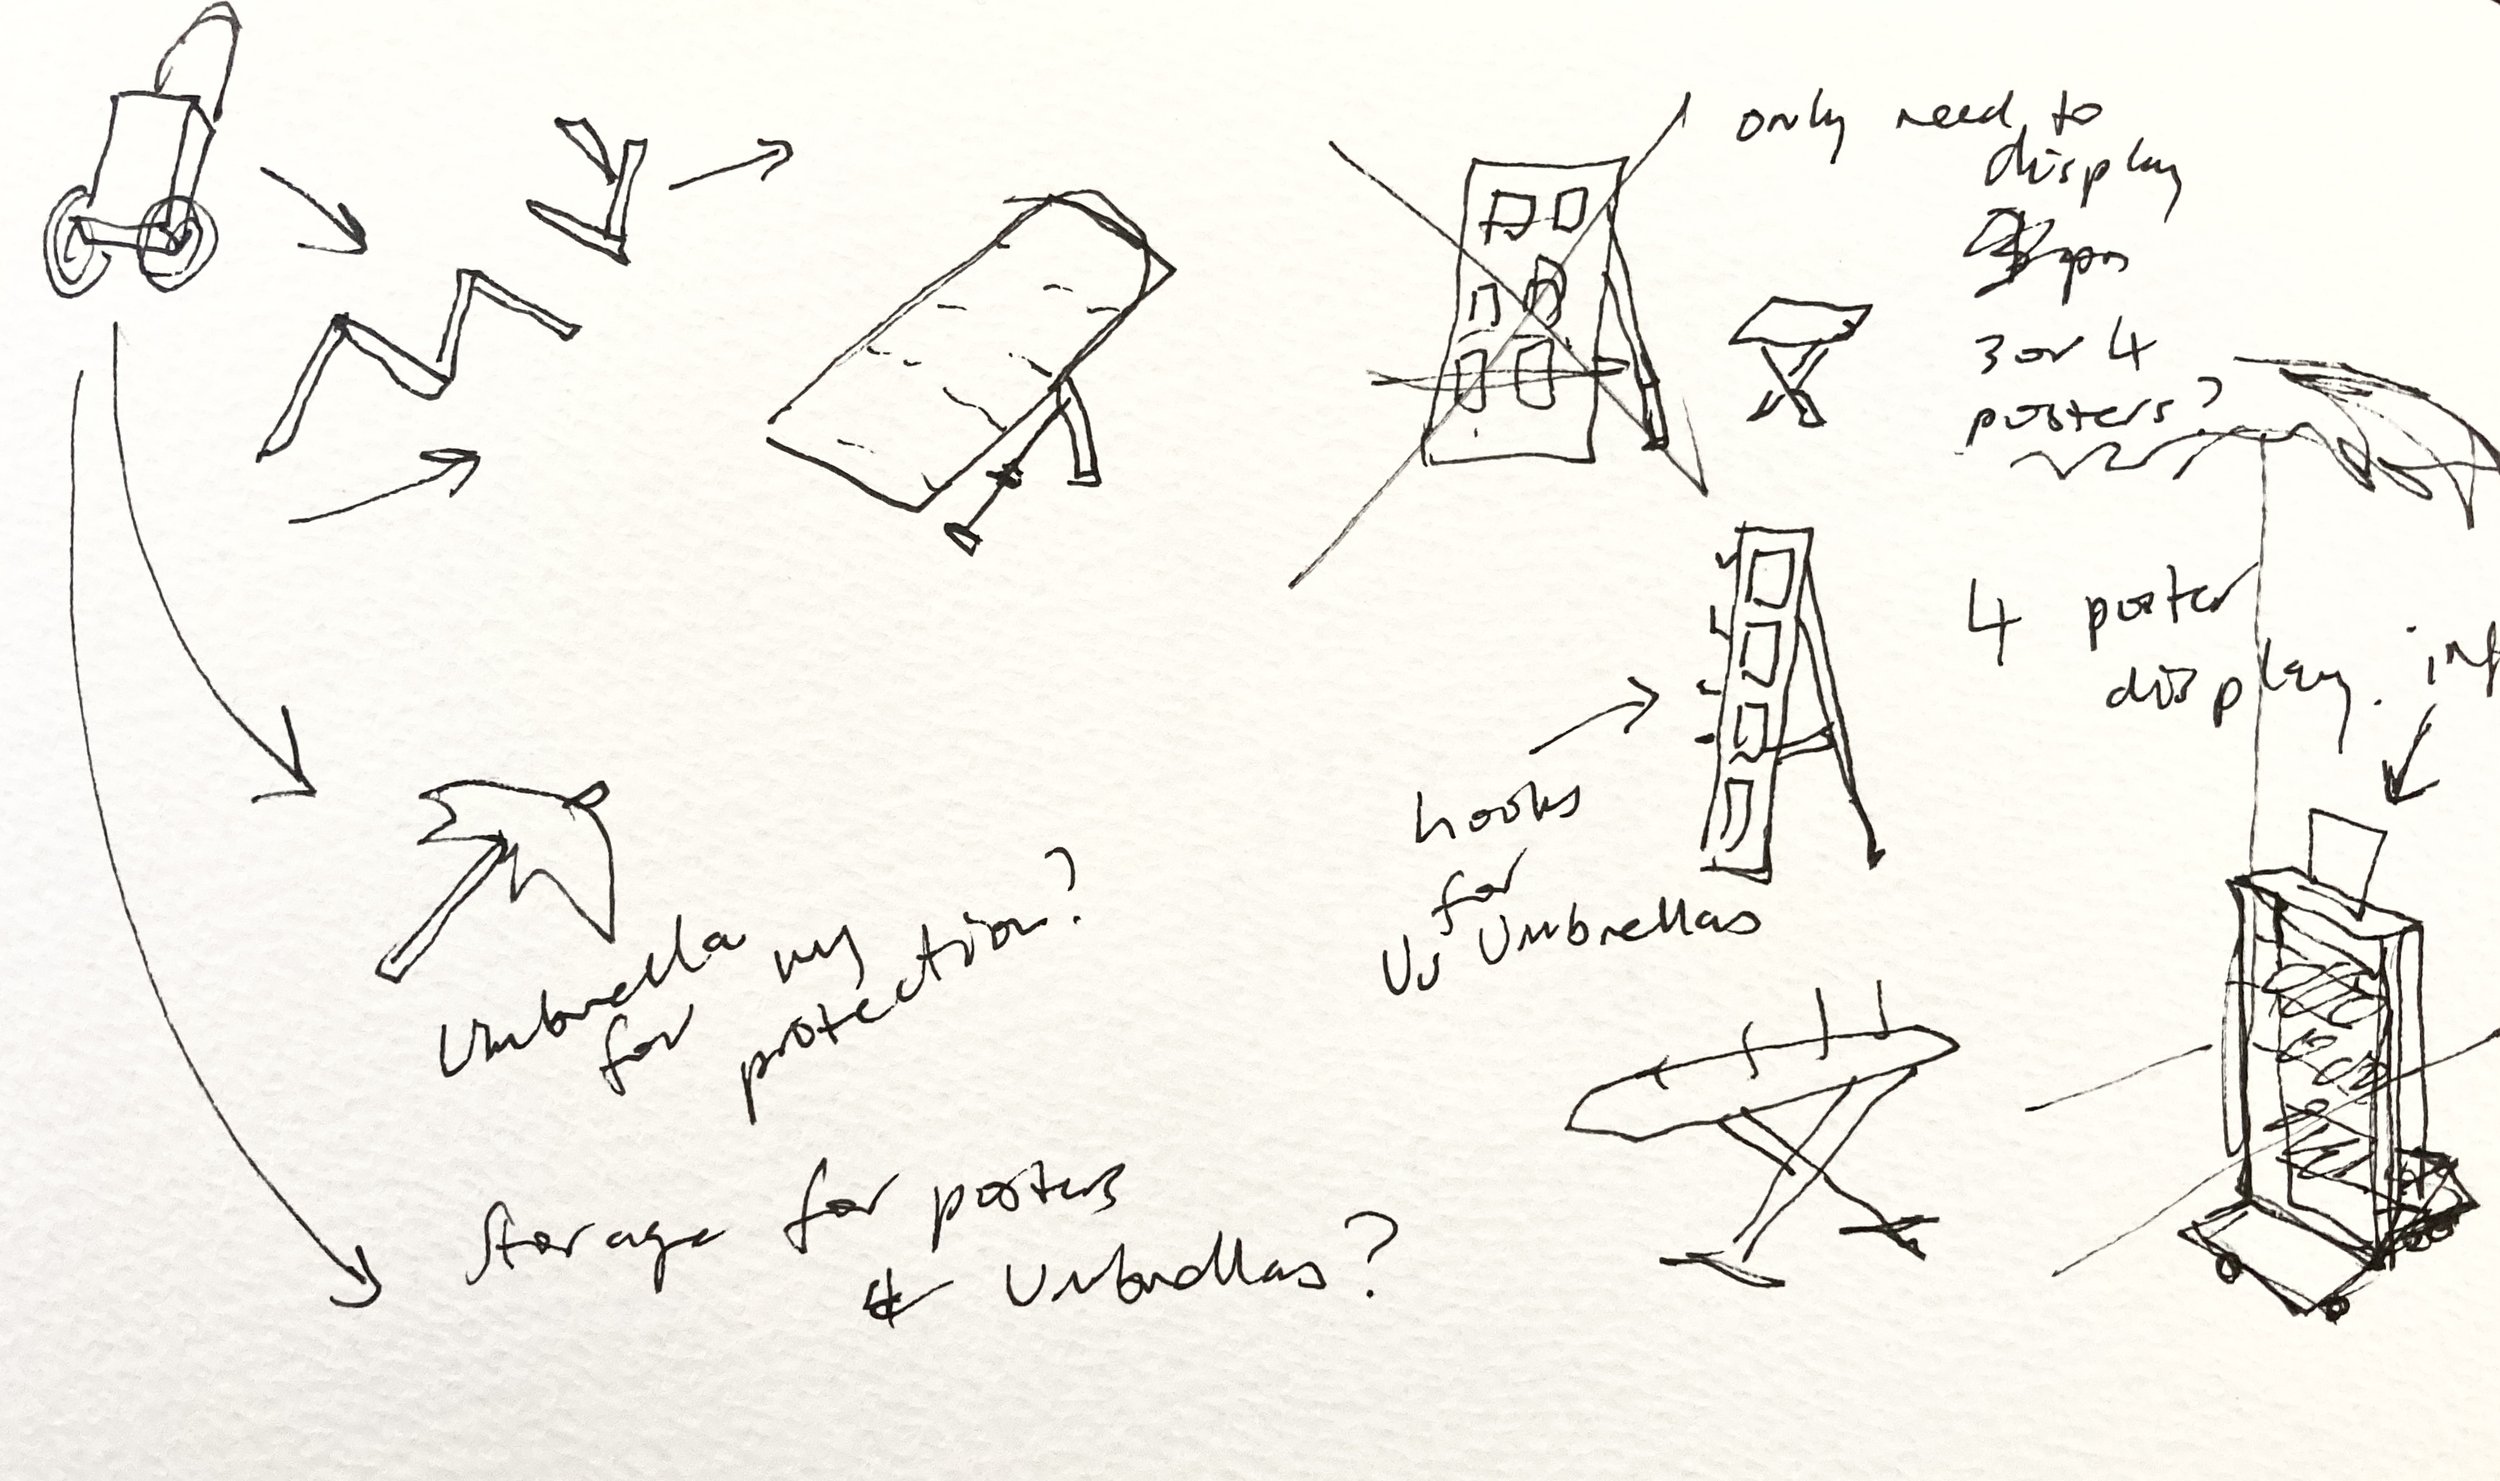 only need to
display
3 or 4
posters?
4 poster
display.
inf
hooks
for
Umbrellas
Umbrella
for
protection?
Storage for posters
& Umbrellas?